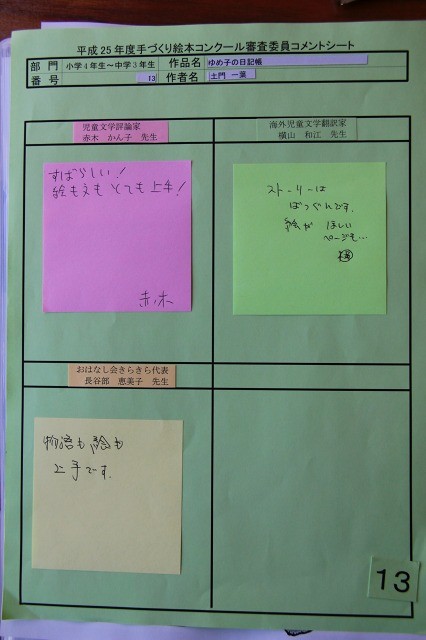 平成25年度手づくり絵本コンクール審査委員コメントシート
部門 小学4年生〜中学3年生 作品名 ゆめ子の日記帳
番号 13 作者名 土門 一葉
児童文学評論家
赤木 かん子 先生
海外児童文学翻訳家
横山 和江 先生
すばらしい!
絵も文も とても上手!
赤木
ストーリーは
ばつぐんです。
絵が ほしい
ページも…
横
おはなし会きらきら代表
長谷部 恵美子 先生
物語も絵も
上手です。
13